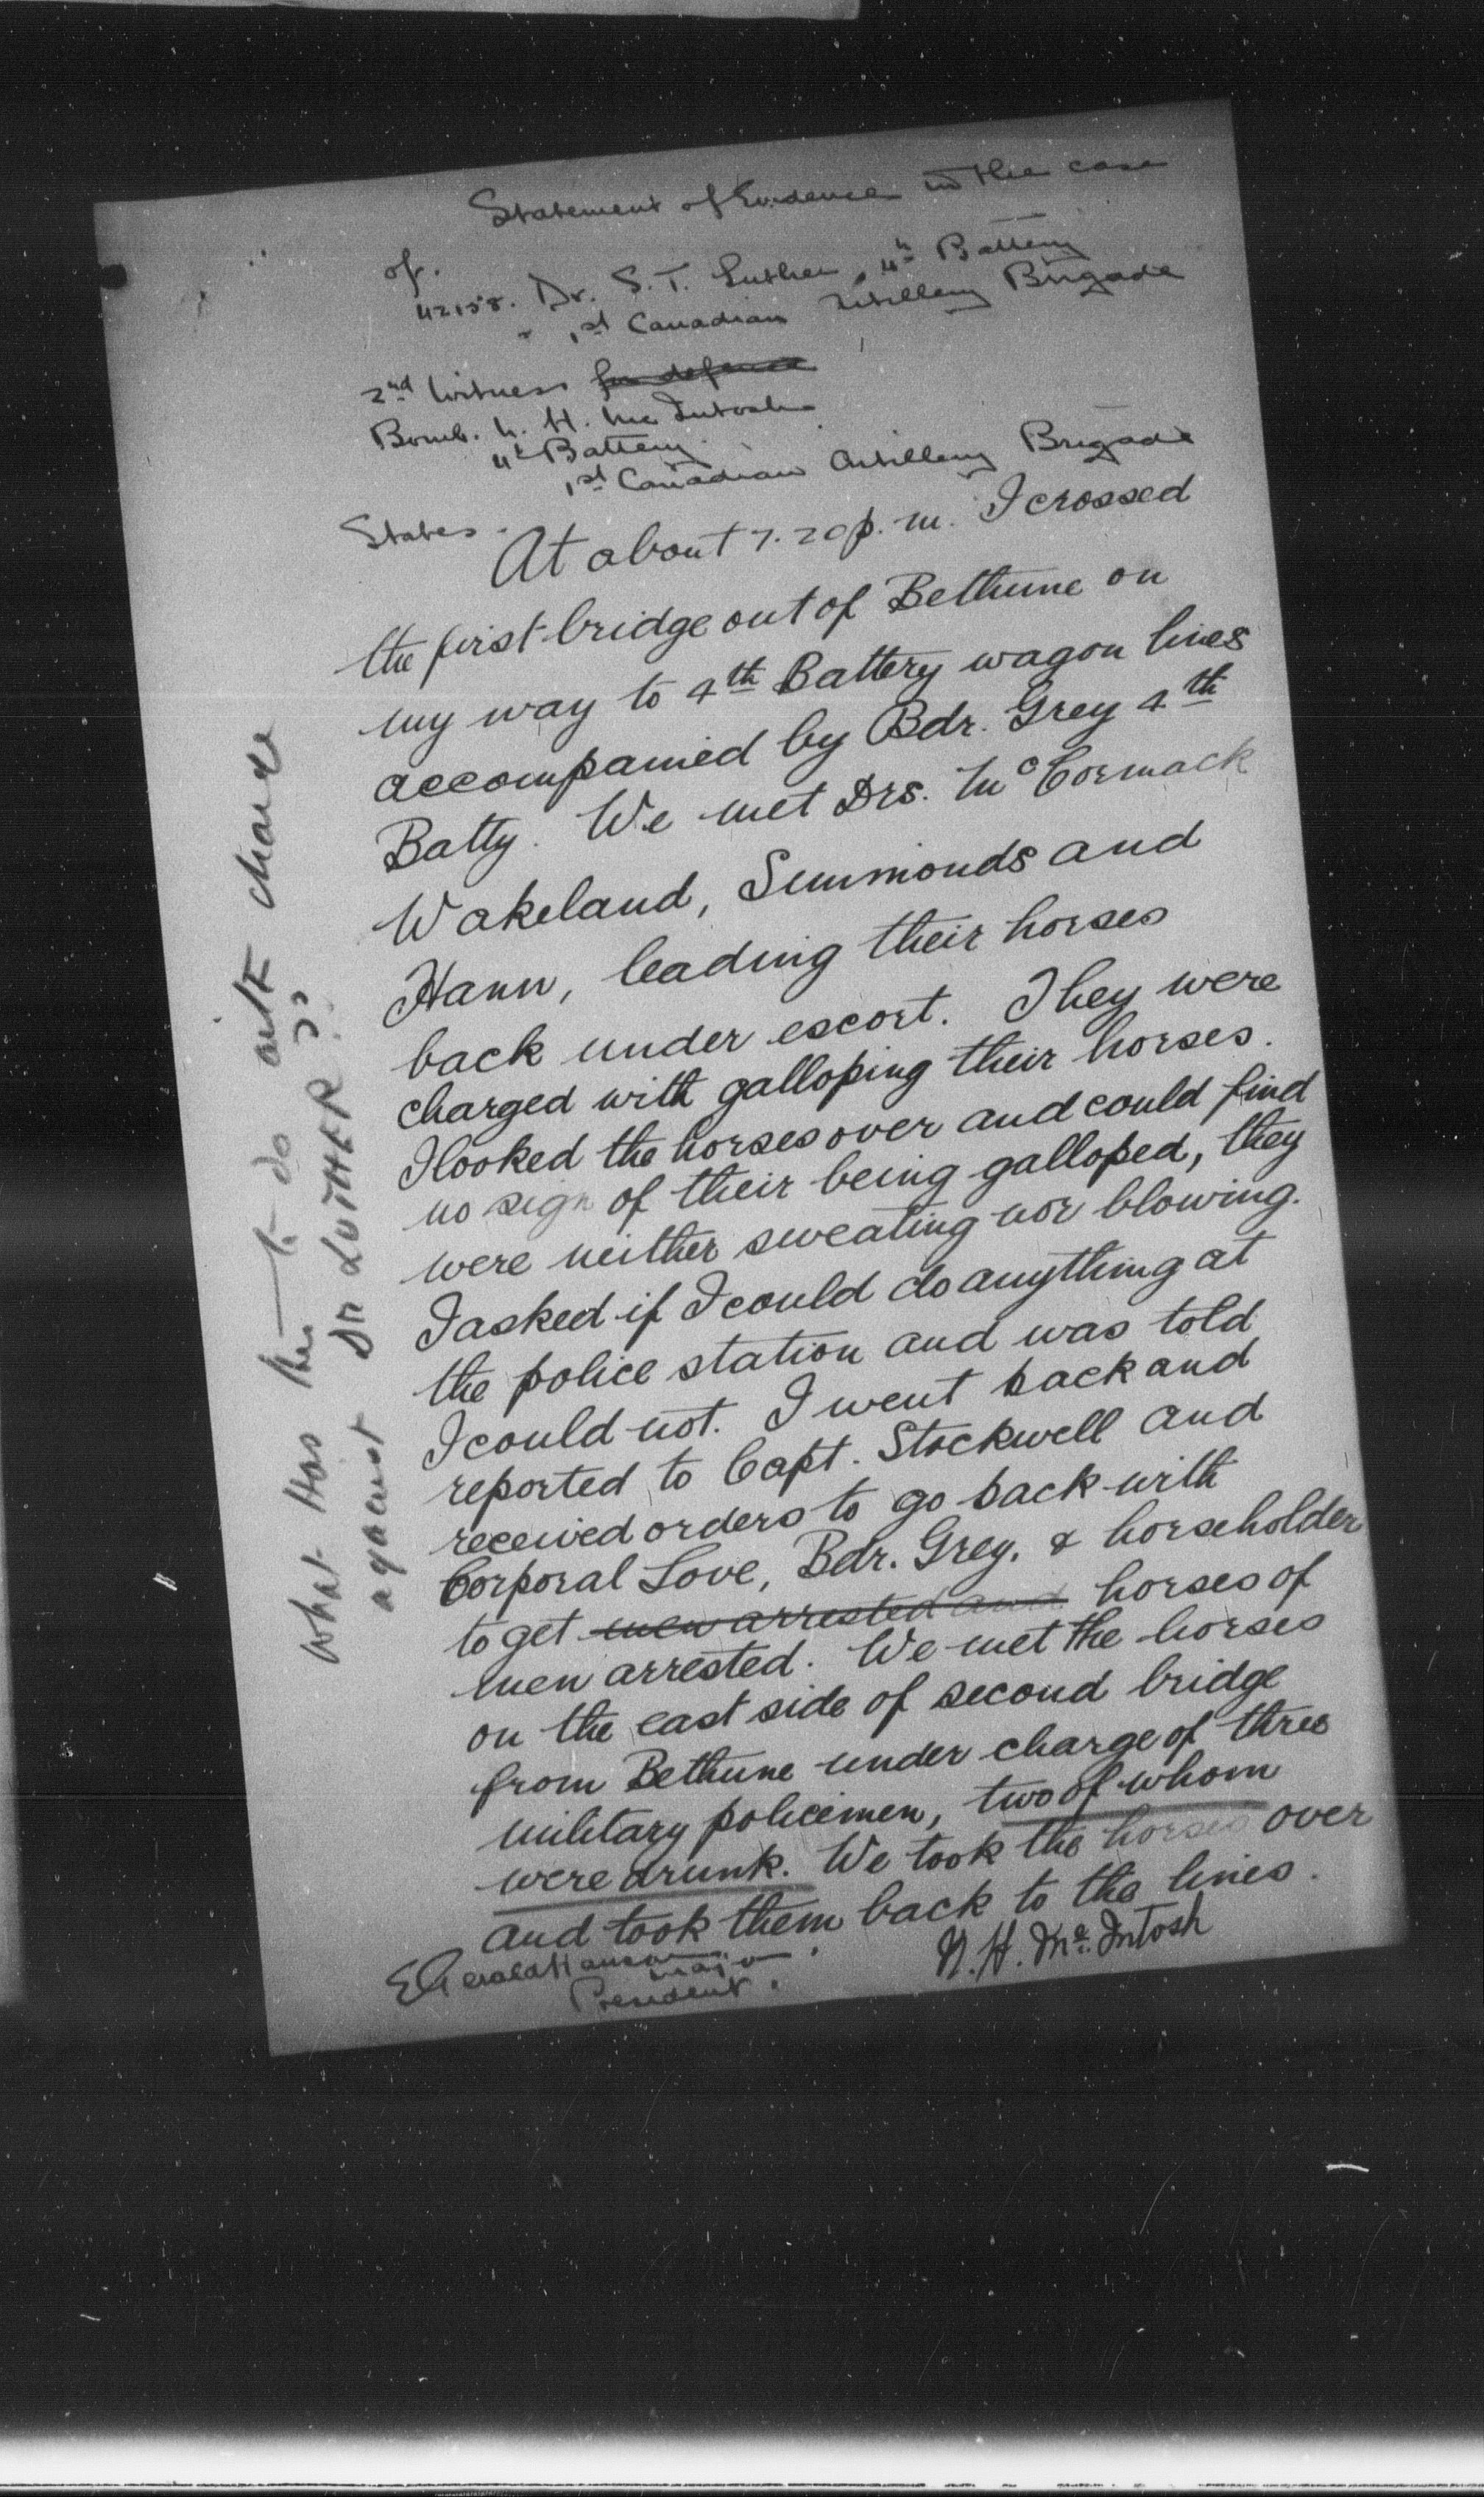 Statement of Evidence in the case
of.
42158. Dr. S. T. Luther, 4th Battery
1st Canadian Artillery Brigade
2nd Witness for defence
Bomb. N. H. McIntosh
4th Battery
1st Canadian Artillery Brigade
States.
At about 7.20 p.m. I crossed
the first bridge out of Bethune on
my way to 4th Battery wagon lines
accompanied by Bdr. Grey 4th
Batty. We met Drs. McCormack
Wakeland, Simmonds and
Hann, leading their horses
back under escort. They were
charged with galloping their horses.
I looked the horses over and could find
no sign of their being galloped, they
were neither sweating nor blowing.
I asked if I could do anything at
the police station and was told
I could not. I went back and
reported to Capt. Stockwell and
received orders to go back with
Corporal Love, Bdr. Grey, & horseholder
to get men arrested and horses of
men arrested. We met the horses
on the east side of second bridge
from Bethune under charge of three
military policemen, two of whom
were drunk. We took the horses over
and took them back to the lines.
N. H. McIntosh
E Gerald Hanson
Major
President.
What Has this to do with charge
against Dr LUTHER ??